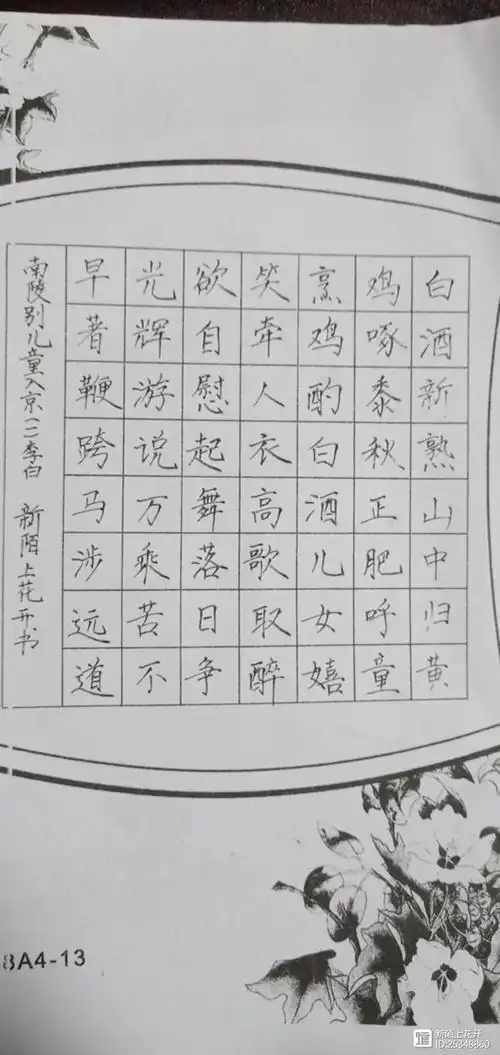 白酒新熟山中归黄
鸡啄黍秋正肥呼童
烹鸡酌白酒儿女嬉
笑牵人衣高歌取醉
欲自慰起舞落日争
光辉游说万乘苦不
早著鞭跨马涉远道
南陵别儿童入京(一)李白 新陌上花开书
8A4-13
新陌上花开
ID:25348860